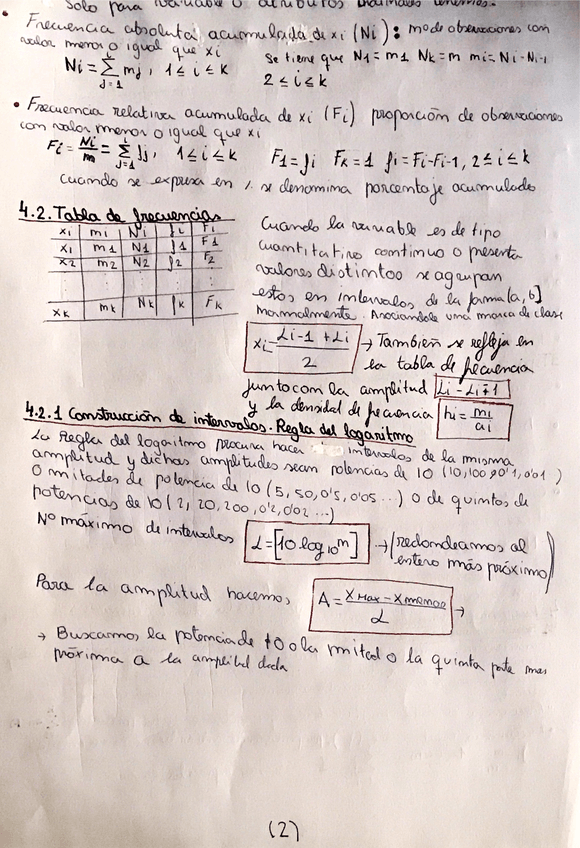 Solo para variable o atributos ordinales tenemos:
• Frecuencia absoluta acumulada de xi (Ni): nº de observaciones con
valor menor o igual que xi
Ni = Σ nj, 1 ≤ i ≤ k   Se tiene que N1 = n1 Nk = n ni = Ni - Ni-1
j=1   2 ≤ i ≤ k
• Frecuencia relativa acumulada de xi (Fi) proporción de observaciones
con valor menor o igual que xi
Fi = Ni/n = Σ fj, 1 ≤ i ≤ k   F1 = fi Fk = 1 fi = Fi - Fi-1, 2 ≤ i ≤ k
j=1
cuando se expresa en % se denomina porcentaje acumulado
4.2. Tabla de frecuencias
xi ni Ni fi Fi
x1 n1 N1 f1 F1
x2 n2 N2 f2 F2
⋮ ⋮ ⋮ ⋮ ⋮
xk nk Nk fk Fk
Cuando la variable es de tipo
cuantitativo continuo o presenta
valores distintos se agrupan
estos en intervalos de la forma (a, b]
normalmente. Asociandole una marca de clase
xi = Li-1 + Li / 2 → También se refleja en
la tabla de frecuencia
junto con la amplitud Li - Li+1
y la densidad de frecuencia hi = ni/ai
4.2.1 Construcción de intervalos. Regla del logaritmo
La Regla del logaritmo procura hacer intervalos de la misma
amplitud y dichas amplitudes sean potencias de 10 (10, 100, 0'1, 0'01)
O mitades de potencia de 10 (5, 50, 0'5, 0'05 ...) o de quintos de
potencias de 10 (2, 20, 200, 0'2, 0'02 ...)
Nº máximo de intervalos L = [10·log10 n] → (redondeamos al
entero más próximo)
Para la amplitud hacemos A = XMax - Xmenor / L →
→ Buscamos la potencia de 10 o la mitad o la quinta parte mas
próxima a la amplitud dada
(2)